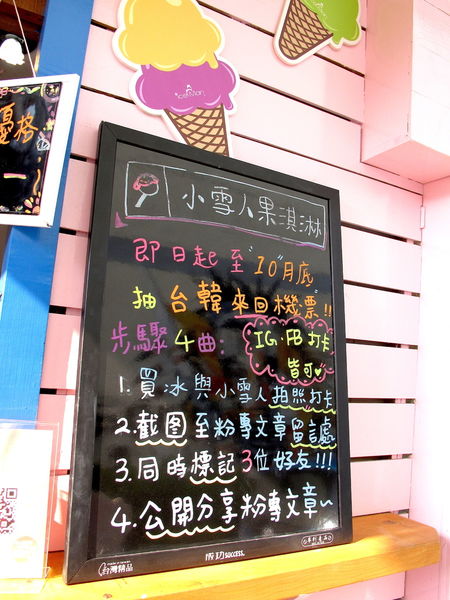 小雪人果淇淋
即日起至"10"月底
抽台韓來回機票"!!
步驟4曲:
IG、FB 打卡
皆可
1.買冰與小雪人拍照打卡
2.截图至粉專文章留言處
3.同時標記3位好友!!!
4.公開分享粉專文章~
台灣精品
成功 SUCCESS.
優格